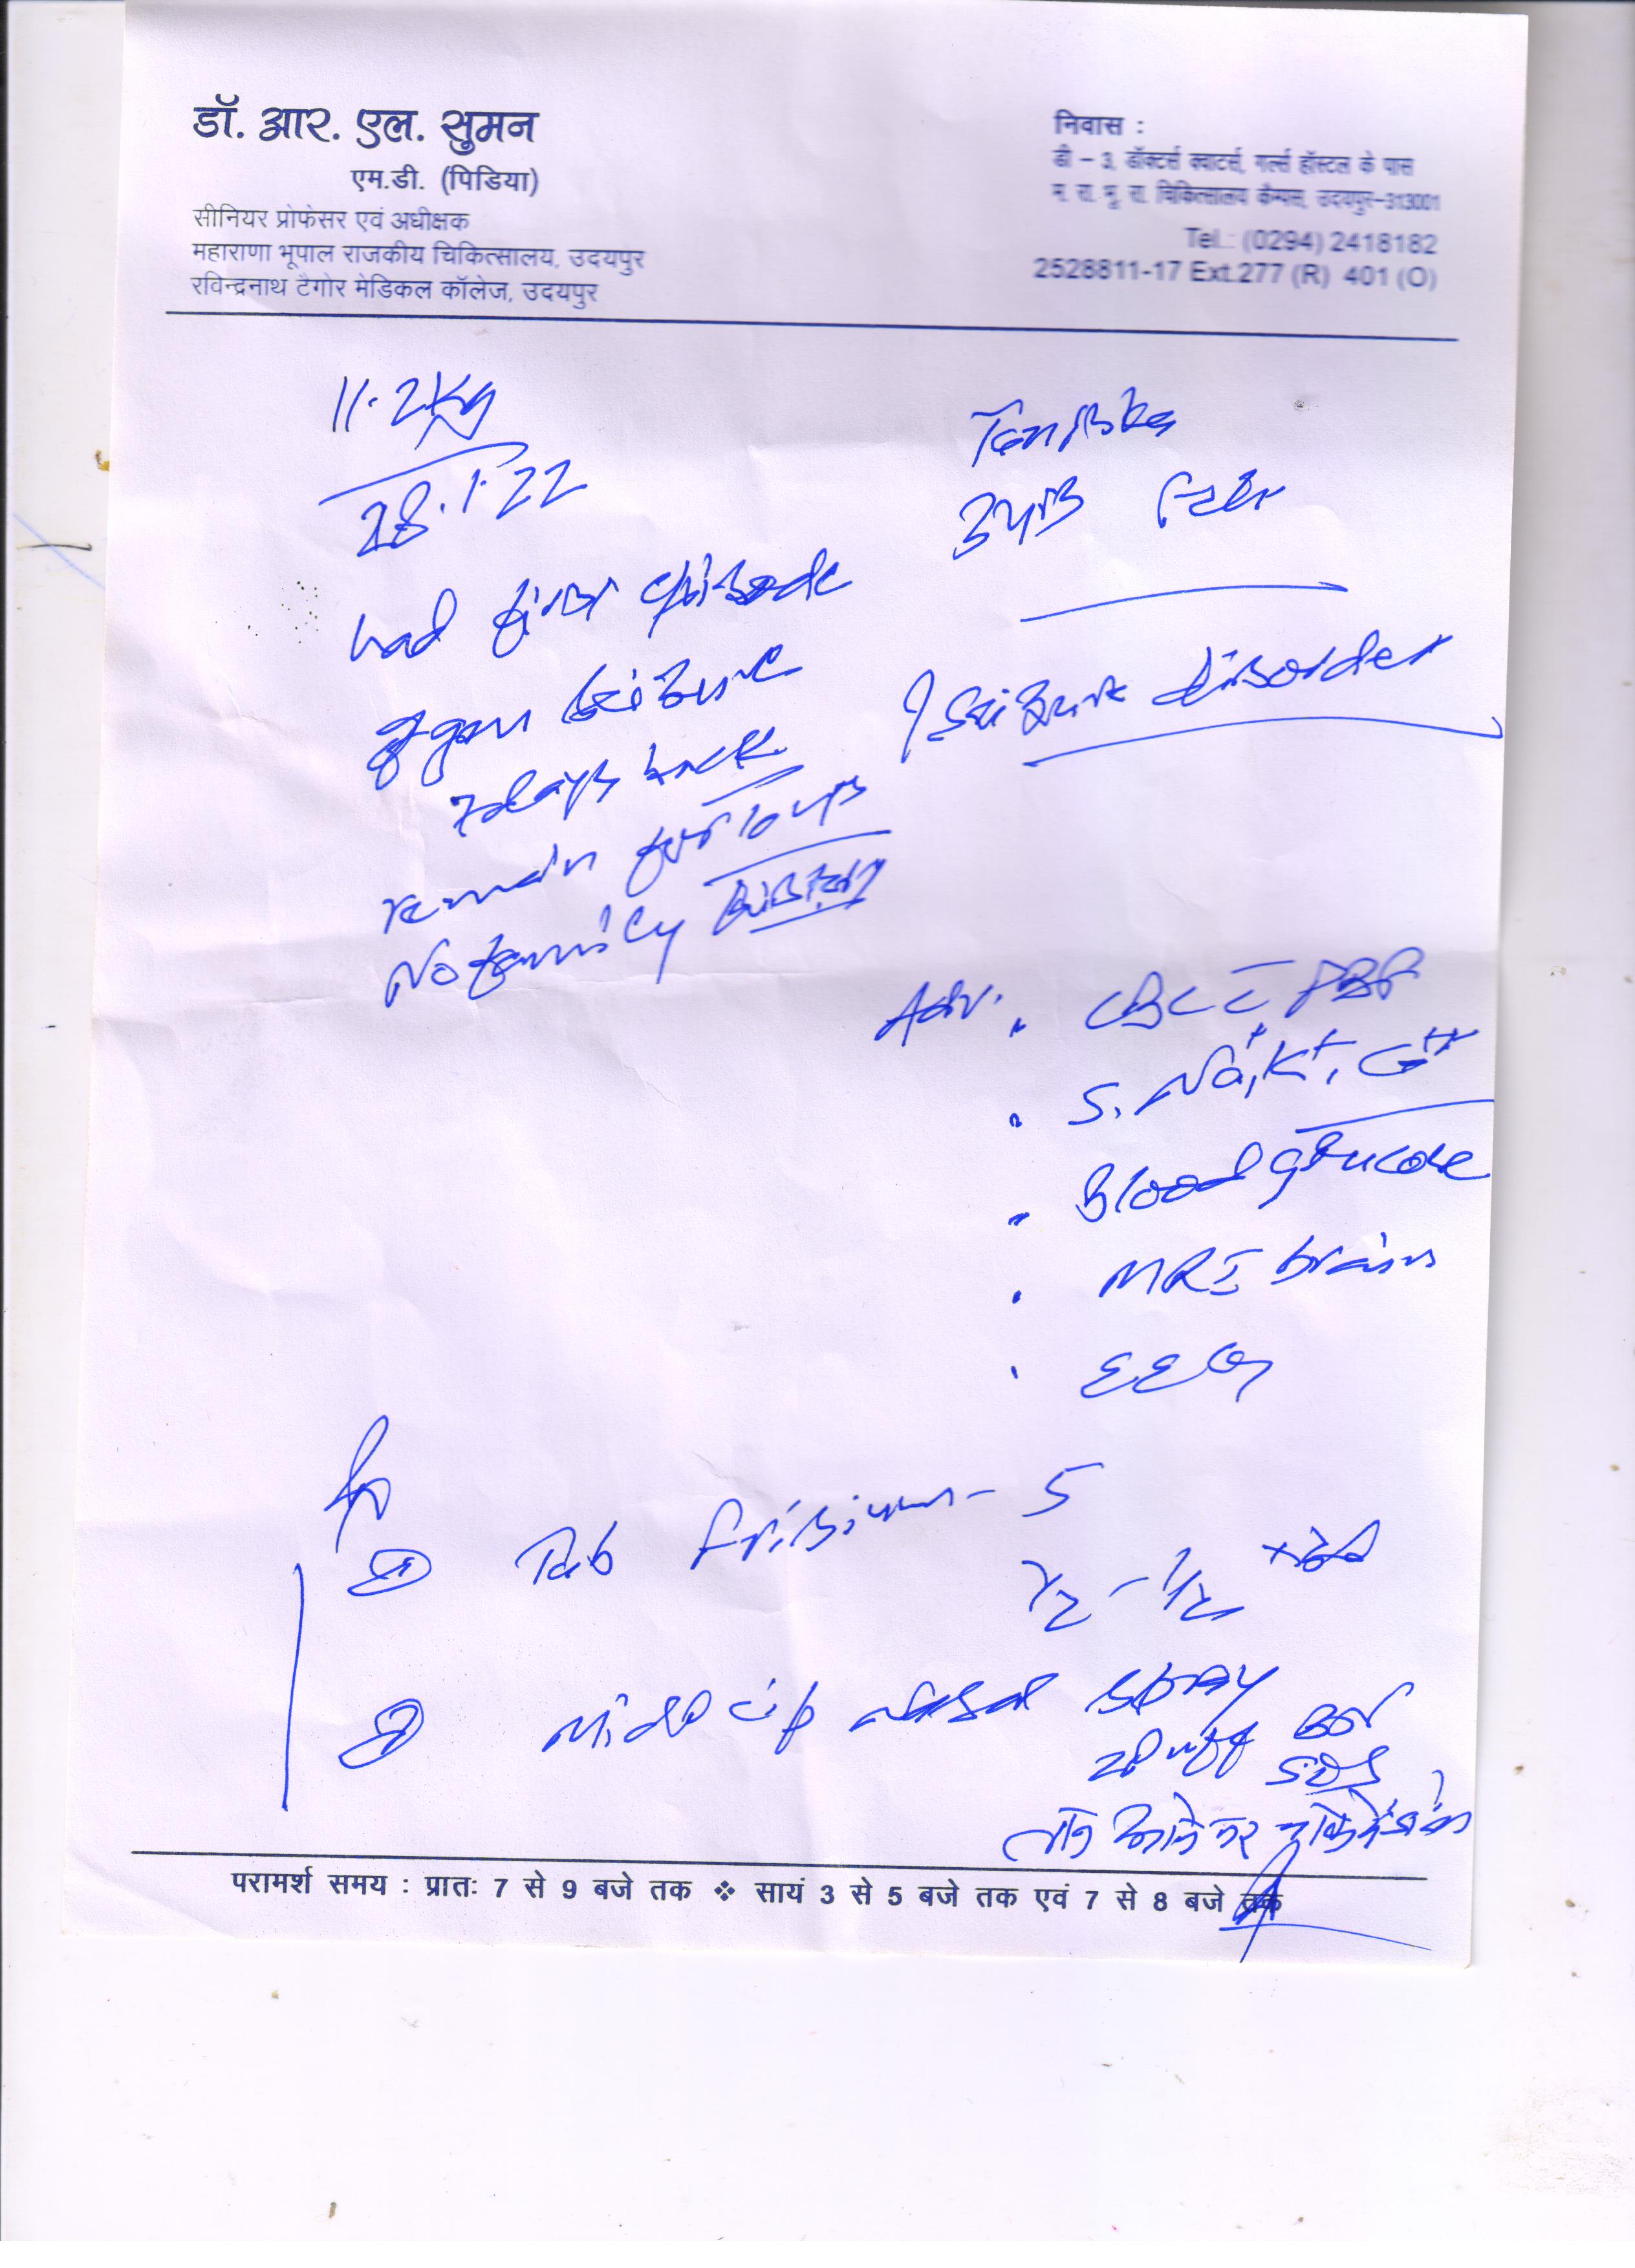 डॉ. आर. एल. सुमन
एम.डी. (पिडिया)
सीनियर प्रोफेसर एवं अधीक्षक
महाराणा भूपाल राजकीय चिकित्सालय, उदयपुर
रविन्द्रनाथ टैगोर मेडिकल कॉलेज, उदयपुर
निवास :
डी – 3, डॉक्टर्स क्वाटर्स, गर्ल्स हॉस्टल के पास
म. रा. भू. रा. चिकित्सालय कैम्पस, उदयपुर–313001
Tel.: (0294) 2418182
2528811-17 Ext.277 (R) 401 (O)
11.2Kg
28.1.22
had first episode
of gen seizure
7 days back
remain for
No family history
3 yrs
? Seizure disorder
Adv. . CBC c̄ PBF
. S. Na+, K+, C++
. Blood glucose
. MRI brain
. EEG
① Tab Frisium – 5
1/2 – 1/2
② Midacip Nasal spray
2 puff
SOS
परामर्श समय : प्रातः 7 से 9 बजे तक ❖ सायं 3 से 5 बजे तक एवं 7 से 8 बजे तक